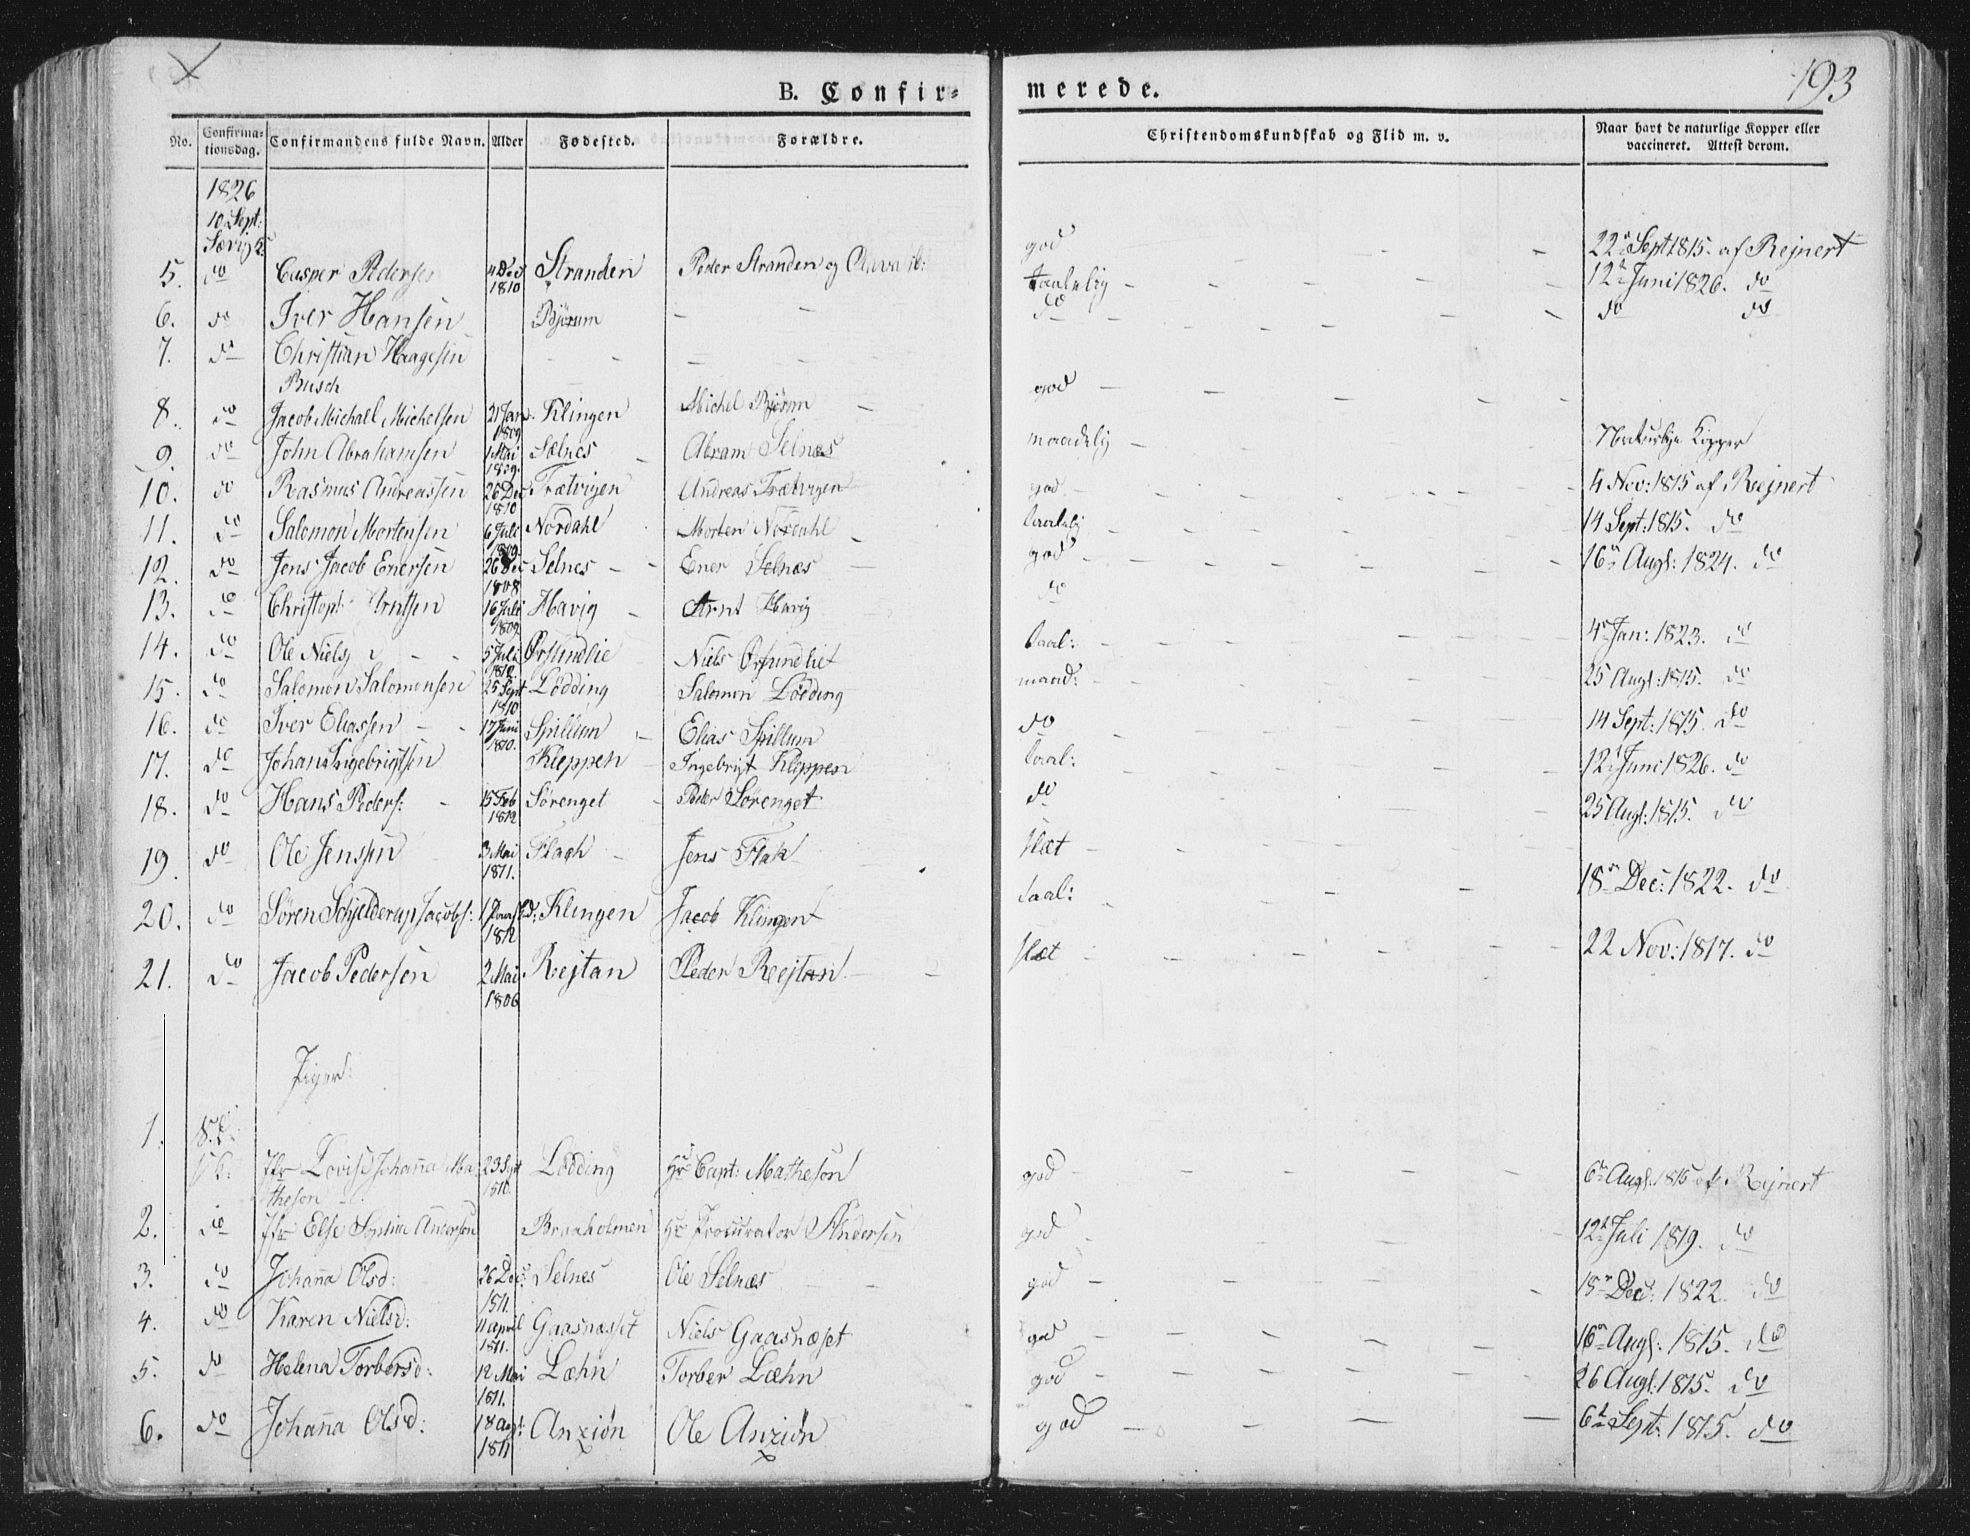 193
B. Confir-
merede.
No. Confirma-tionsdag. Confirmandens fulde Navn. Alder Fødested. Forældre. Christendomskundskab og Flid m. v. Naar havt de naturlige Kopper eller vaccineret. Attest derom.
1826
10 Sept:
5. do Casper Peders 4 Dec 1810 Stranden Peder Stranden og god 22 Sept 1815. af Rejnert
6. do Iver Hansen Bjørum - - taalelig - 12 Juni 1826. do
7. do Christian Haagesen Busch - - - do - do do
8. do Jacob Michael Michelsen 21 Jan: 1809 Klingen Michel Bjørum - god -
9. do John Abrahamsen 1 Mai 1809. Sælnes - Abram Selnæs maadelig - Naturlige Kopper
10. do Rasmus Andreassen 26 Dec 1810 Trætvigen Andreas Trætvigen god - 4 Nov: 1815 af Rejnert
11. do Salomon Mortensen 6 Juli 1809. Nordahl Morten Nordahl - taalelig 14 Sept: 1815. do
12. do Jens Jacob Enersen 26 Dec 1808 Selnes - - Ener Selnæs - god - 16 Augs: 1824. do
13. do Christoph Arntsen 16 Juli 1809 Havig - Arnt Havig do
14. do Ole Niels - - 5 Juli 1810. Ørsundlie Niels Ørsundliet taal: - 4 Jan: 1823. do
15. do Salomon Salomonsen 25 Sept 1810 Lødding Salomon Lødding maad: - 25 Augs: 1815. do
16. do Iver Eliassen - - 17 Juni 1810. Spillum - Elias Spillum do 14 Sept: 1815. do
17. do Johan Ingebrigtsen Kleppen - Ingebrigt Kleppen taal: 12 Juni 1826. do
18. do Hans Peders: - 15 Feb 1812 Sørenget - Peder Sørenget do 25 Augs: 1815. do
19 do Ole Jensen 3 Mai 1811. Flagh - Jens Flak slæt -
20. do Søren Schjelderup Jacobs: 1812 Klingen Jacob Klingen taal: 18 Dec: 1822. do
21. do Jacob Pedersen 2 Mai 1806 Rejtan Peder Rejtan - slæt - 22 Nov: 1817. do
Piger:
1. Jfr Lovise Johanna Matheson 23 Sept 1810. Lødding Hr Capt: Matheson god - 6 Augs: 1815 af Rejnert
2. do Jfr Else Sophie Andersen Braaholmen Hr Procurator Andersen god - 12 Juli 1819. do
3. do Johanna Olsd: 26 Dec: 1811. Selnes Ole Selnæs god - 18 Dec: 1822. do
4. do Karen Nielsd: 11 April 1811. Gaasnæsset Niels Gaasnæset god - 16 Augs: 1815. do
5. do Helena Torbersd: 12 Mai 1811. Læhn Torber Læhn god - 26 Augs: 1815. do
6. do Johanna Olsd: 18 Augs: 1811 Anziøn Ole Anziøn god - 6 Sept: 1815. do